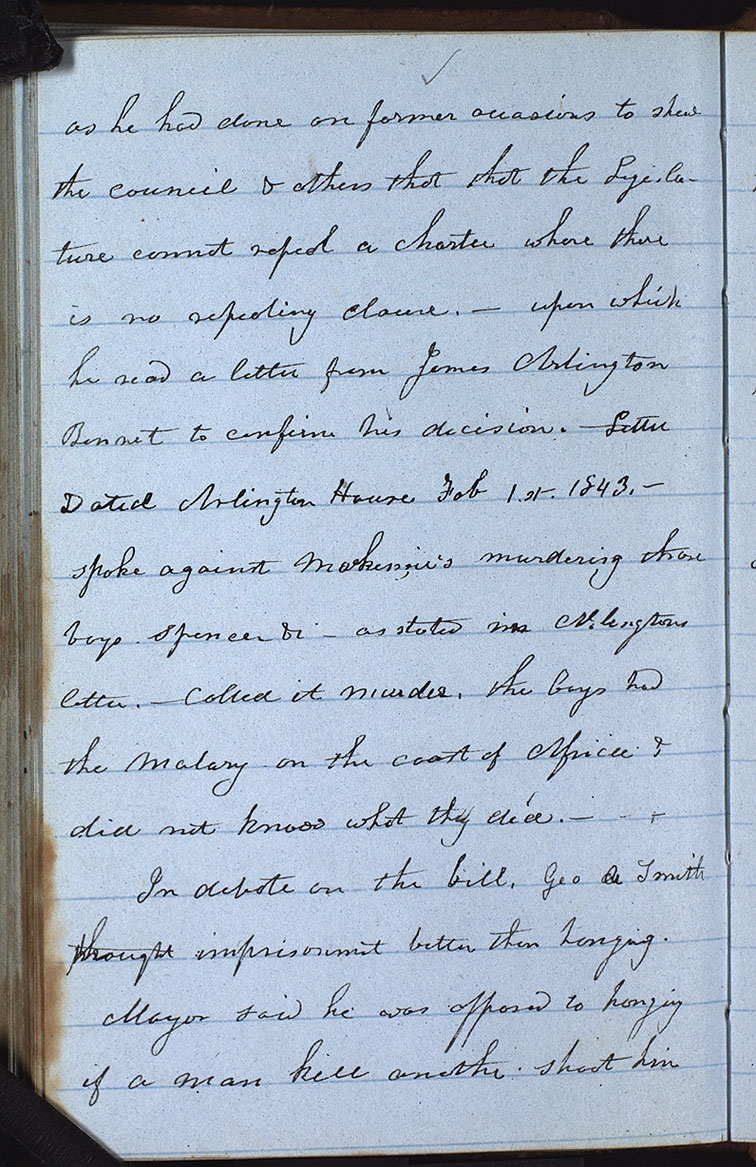 as he had done on former occasions to shew
the council & others that that the Legisla-
ture cannot repeal a charter where there
is no repealing clause. — upon which
he read a letter from James Arlington
Bennet to confirm his decision. — Letter
Dated Arlington House Feb 1st. 1843. —
spoke against Makenzie's murdering those
boys. Spencer &c — as stated in Arlingtons
letter. — Called it murder. the boys had
the Malary on the coast of Africa &
did not know what they did. — - +
In debate on the bill, Geo A Smith
thought imprisonmnt better than hanging.
Mayor said he was opposed to hanging
if a man kill another shoot him